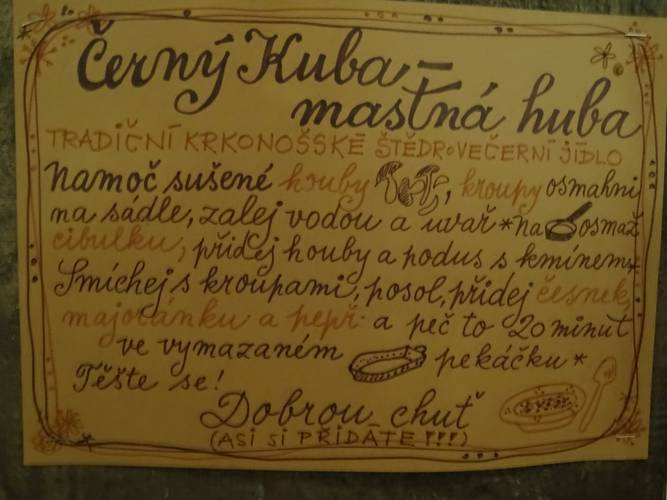 Černý Kuba –
mastná huba
TRADIČNÍ KRKONOŠSKÉ ŠTĚDROVEČERNÍ JÍDLO
Namoč sušené houby, kroupy osmahni
na sádle, zalej vodou a uvař * na osmaž
cibulku, přidej houby a podus s kmínem *
Smíchej s kroupami, posol, přidej česnek,
majoránku a pepř a peč to 20 minut
ve vymazaném pekáčku *
Těšte se!
Dobrou chuť
(ASI SI PŘIDÁTE !!!)